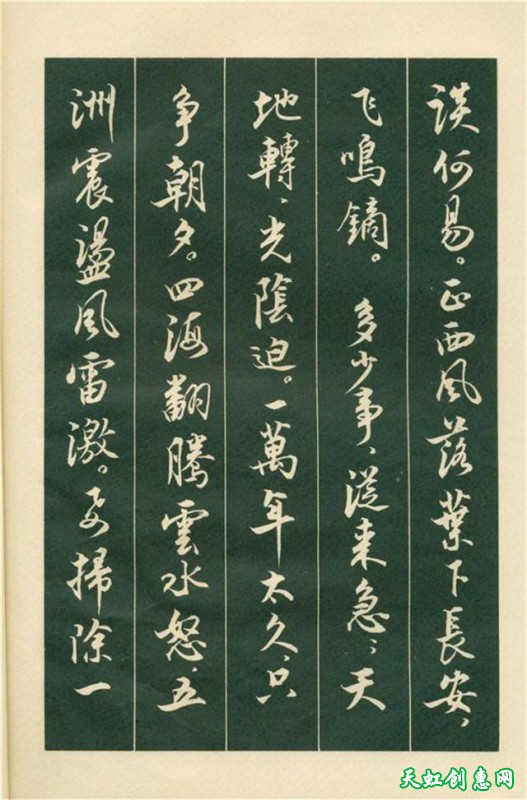 談何易。正西风落葉下長安，
飞鳴鏑。 多少事，從来急；天
地轉，光陰迫。一萬年太久，只
争朝夕。四海翻騰雲水怒，五
洲震盪风雷激。要掃除一
天虹创惠网